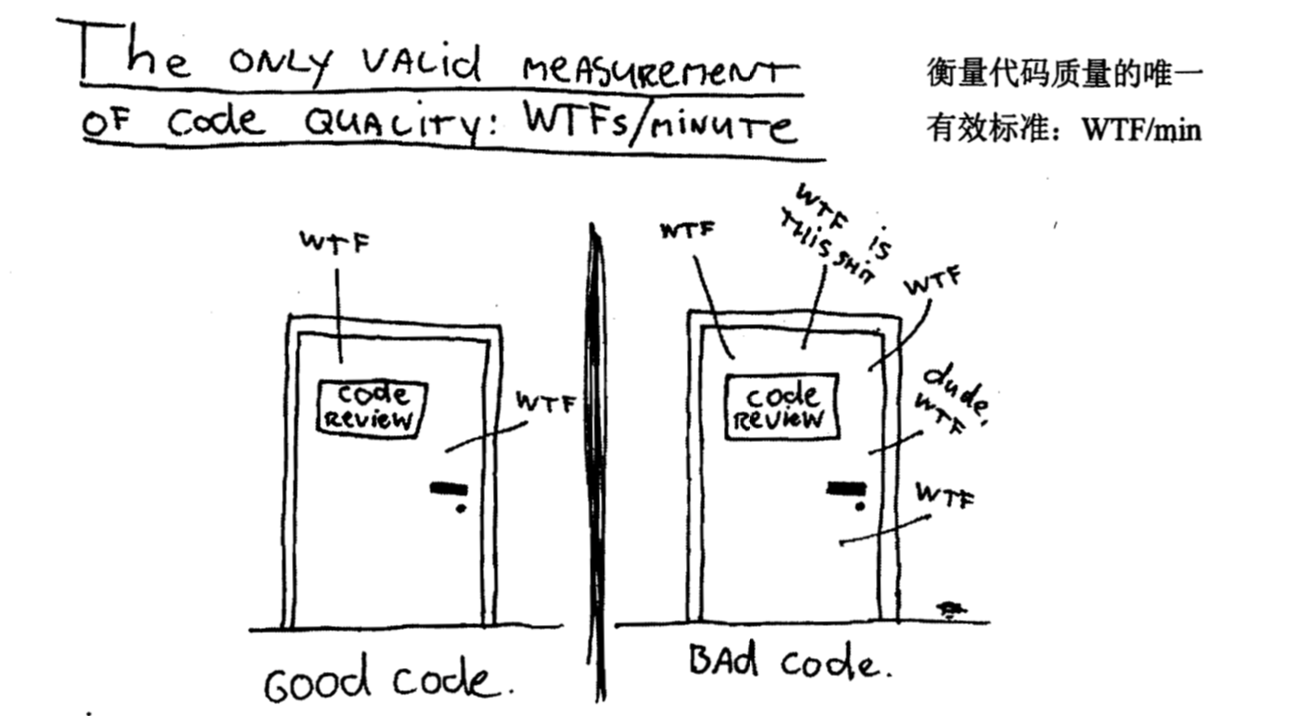 The ONLY VALid MEASUREMENT
OF Code QUALITY: WTFs/MINUTE
衡量代码质量的唯一
有效标准：WTF/min
WTF
Code
REVIEW
WTF
GOOD CODE.
WTF
WTF iS
THiS SHiT
WTF
Code
REVIEW
dude,
WTF
WTF
BAd Code.